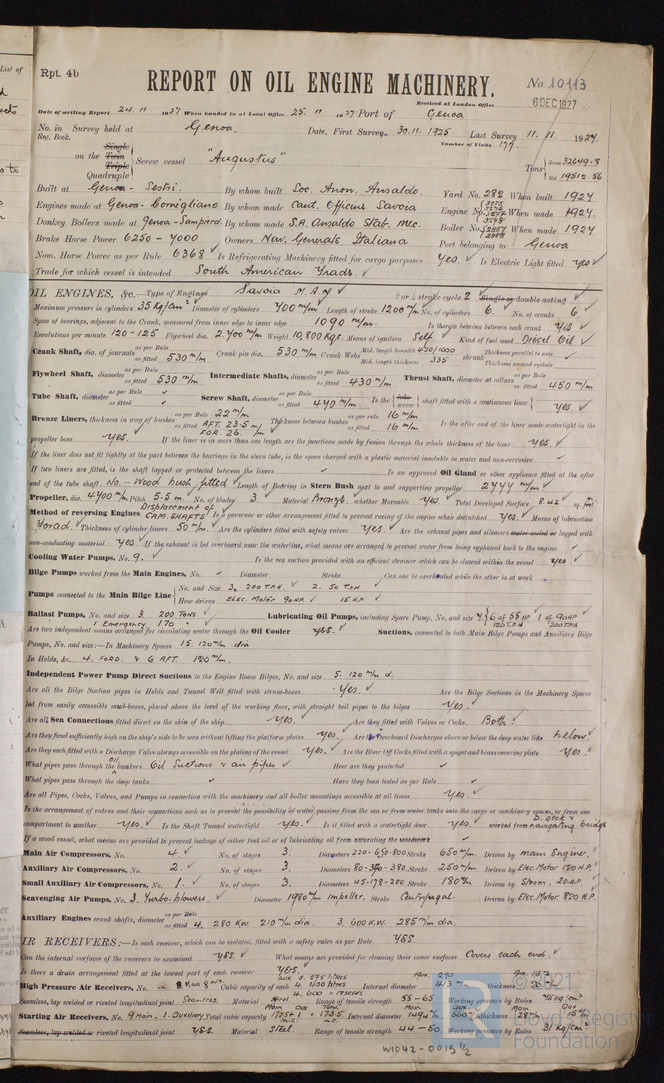 List of
Rpt. 4b
REPORT ON OIL ENGINE MACHINERY.
No. 10113
Received at London Office 6 DEC 1927
Date of writing Report 24.11 1927 When handed in at Local Office 25.11 1927 Port of Genoa
No. in Reg. Book. Survey held at Genoa. Date, First Survey 30.11.1925 Last Survey 11.11.1927
Number of Visits 177
on the Single Twin Triple Quadruple Screw vessel "Augustus" Tons Gross 32649.8 Net 19512.56
Built at Genoa - Sestri. By whom built Soc. Anon. Ansaldo Yard No. 282 When built 1927
Engines made at Genoa-Cornigliano By whom made Cant. Officine Savoia Engine No. When made 1927.
Donkey Boilers made at Genoa-Sampierd. By whom made S.A. Ansaldo Stab. Mec. Boiler No. When made 1927
Brake Horse Power 6250 - 7000 Owners Nav. Generale Italiana Port belonging to Genoa
Nom. Horse Power as per Rule 6368 Is Refrigerating Machinery fitted for cargo purposes Yes. Is Electric Light fitted Yes
Trade for which vessel is intended South American Trade.
OIL ENGINES, &c.—Type of Engines Savoia M.A.N 2 or 4 stroke cycle 2 Single or double acting
Maximum pressure in cylinders 35 Kg/cm² Diameter of cylinders 700 m/m Length of stroke 1200 m/m No. of cylinders 6 No. of cranks 6
Span of bearings, adjacent to the Crank, measured from inner edge to inner edge 1090 m/m. Is there a bearing between each crank Yes
Revolutions per minute 120-125 Flywheel dia. 2.400 m/m Weight 10,800 Kgs. Means of ignition Self Kind of fuel used Diesel Oil
Crank Shaft, dia. of journals as per Rule as fitted 530 m/m Crank pin dia. 530 m/m Crank Webs Mid. length breadth Mid. length thickness 335 shrunk Thickness parallel to axis Thickness around eyehole
Flywheel Shaft, diameter as per Rule as fitted 530 m/m Intermediate Shafts, diameter as per Rule as fitted 430 m/m Thrust Shaft, diameter at collars as per Rule as fitted 450 m/m
Tube Shaft, diameter as per Rule as fitted Screw Shaft, diameter as per Rule as fitted 470 m/m Is the tube screw shaft fitted with a continuous liner Yes.
Bronze Liners, thickness in way of bushes as per Rule 22 m/m as fitted AFT. 23.5 m/m FOR. 26 Thickness between bushes as per rule 16 m/m as fitted 16 m/m Is the after end of the liner made watertight in the
propeller boss Yes. If the liner is in more than one length are the junctions made by fusion through the whole thickness of the liner Yes.
If the liner does not fit tightly at the part between the bearings in the stern tube, is the space charged with a plastic material insoluble in water and non-corrosive
If two liners are fitted, is the shaft lapped or protected between the liners Is an approved Oil Gland or other appliance fitted at the after
end of the tube shaft No - Wood bush fitted Length of Bearing in Stern Bush next to and supporting propeller 2444 m/m
Propeller, dia. 4400 m/m Pitch 5.5 m. No. of blades 3 Material Bronze. whether Moveable Yes. Total Developed Surface 8.42 sq. feet
Method of reversing Engines Displacement of CAM. SHAFTS Is a governor or other arrangement fitted to prevent racing of the engine when declutched Yes. Means of lubrication
Forced. Thickness of cylinder liners 50 m/m. Are the cylinders fitted with safety valves Yes. Are the exhaust pipes and silencers water cooled or lagged with
non-conducting material Yes If the exhaust is led overboard near the waterline, what means are arranged to prevent water from being syphoned back to the engine
Cooling Water Pumps, No. 9. Is the sea suction provided with an efficient strainer which can be cleared within the vessel Yes
Bilge Pumps worked from the Main Engines, No. Diameter Stroke Can one be overhauled while the other is at work
Pumps connected to the Main Bilge Line No. and Size 3. 200 T.P.H. 2. 50 T.P.H How driven ELEC. MOTOR 90 H.P. 15 H.P
Ballast Pumps, No. and size 3. 200 TONS 1 Emergency 170 Lubricating Oil Pumps, including Spare Pump, No. and size
Are two independent means arranged for circulating water through the Oil Cooler Yes. Suctions, connected to both Main Bilge Pumps and Auxiliary Bilge
Pumps, No. and size:—In Machinery Spaces 15. 120 m/m dia
In Holds, &c. 4. FORD. & 6 AFT. 120 m/m.
Independent Power Pump Direct Suctions to the Engine Room Bilges, No. and size 5. 120 m/m d.
Are all the Bilge Suction pipes in Holds and Tunnel Well fitted with strum-boxes Yes. Are the Bilge Suctions in the Machinery Spaces
led from easily accessible mud-boxes, placed above the level of the working floor, with straight tail pipes to the bilges Yes.
Are all Sea Connections fitted direct on the skin of the ship Yes. Are they fitted with Valves or Cocks Both
Are they fixed sufficiently high on the ship's side to be seen without lifting the platform plates Yes. Are the Overboard Discharges above or below the deep water line below
Are they each fitted with a Discharge Valve always accessible on the plating of the vessel Yes. Are the Blow Off Cocks fitted with a spigot and brass covering plate Yes.
What pipes pass through the oil bunkers Oil Suctions & air pipes How are they protected
What pipes pass through the deep tanks Have they been tested as per Rule
Are all Pipes, Cocks, Valves, and Pumps in connection with the machinery and all boiler mountings accessible at all times Yes.
Is the arrangement of valves and their connections such as to prevent the possibility of water passing from the sea or from water tanks into the cargo or machinery spaces, or from one
compartment to another Yes. Is the Shaft Tunnel watertight Yes. Is it fitted with a watertight door Yes. worked from D. Deck & navigating bridge
If a wood vessel, what means are provided to prevent leakage of either fuel oil or of lubricating oil from saturating the woodwork
Main Air Compressors, No. 4. No. of stages 3. Diameters 220-690-800 Stroke 650 m/m. Driven by Main Engines.
Auxiliary Air Compressors, No. 2. No. of stages 3. Diameters 80-340-380 Stroke 250 m/m Driven by Elec. Motor 120 H.P.
Small Auxiliary Air Compressors, No. 1. No. of stages 3. Diameters 45-178-200 Stroke 180 m/m Driven by Steam. 20 H.P
Scavenging Air Pumps, No. 3. Turbo. blowers. Diameter 1980 m/m Impeller. Stroke Centrifugal. Driven by Elec. Motor. 820 H.P
Auxiliary Engines crank shafts, diameter as per Rule as fitted 4. 280 KW. 210 m/m dia 3. 600 K.W. 285 m/m dia.
AIR RECEIVERS:—Is each receiver, which can be isolated, fitted with a safety valve as per Rule Yes.
Can the internal surfaces of the receivers be examined Yes. What means are provided for cleaning their inner surfaces Covers each end.
Is there a drain arrangement fitted at the lowest part of each receiver Yes.
High Pressure Air Receivers, No. Cubic capacity of each Internal diameter thickness
Seamless, lap welded or riveted longitudinal joint Seamless. Material Steel. Range of tensile strength 55-65 Working pressure by Rules
Starting Air Receivers, No. 9 Main, 1. Auxiliary. Total cubic capacity Internal diameter thickness
Seamless, lap welded or riveted longitudinal joint Yes. Material Steel. Range of tensile strength 44-50 Working pressure by Rules 31 kg/cm²
© 2021
Lloyd's Register
Foundation
W1042-0015 1/2